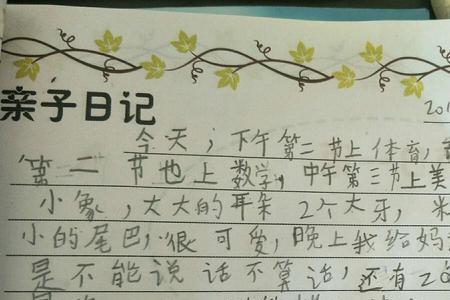 亲子日记
201
今天，下午第二节上体育，
第二节也上数学，中午第三节上美
小象，大大的耳朵 2个大牙，
小的尾巴，很可爱，晚上我给妈
是不能说话不算话，还有20